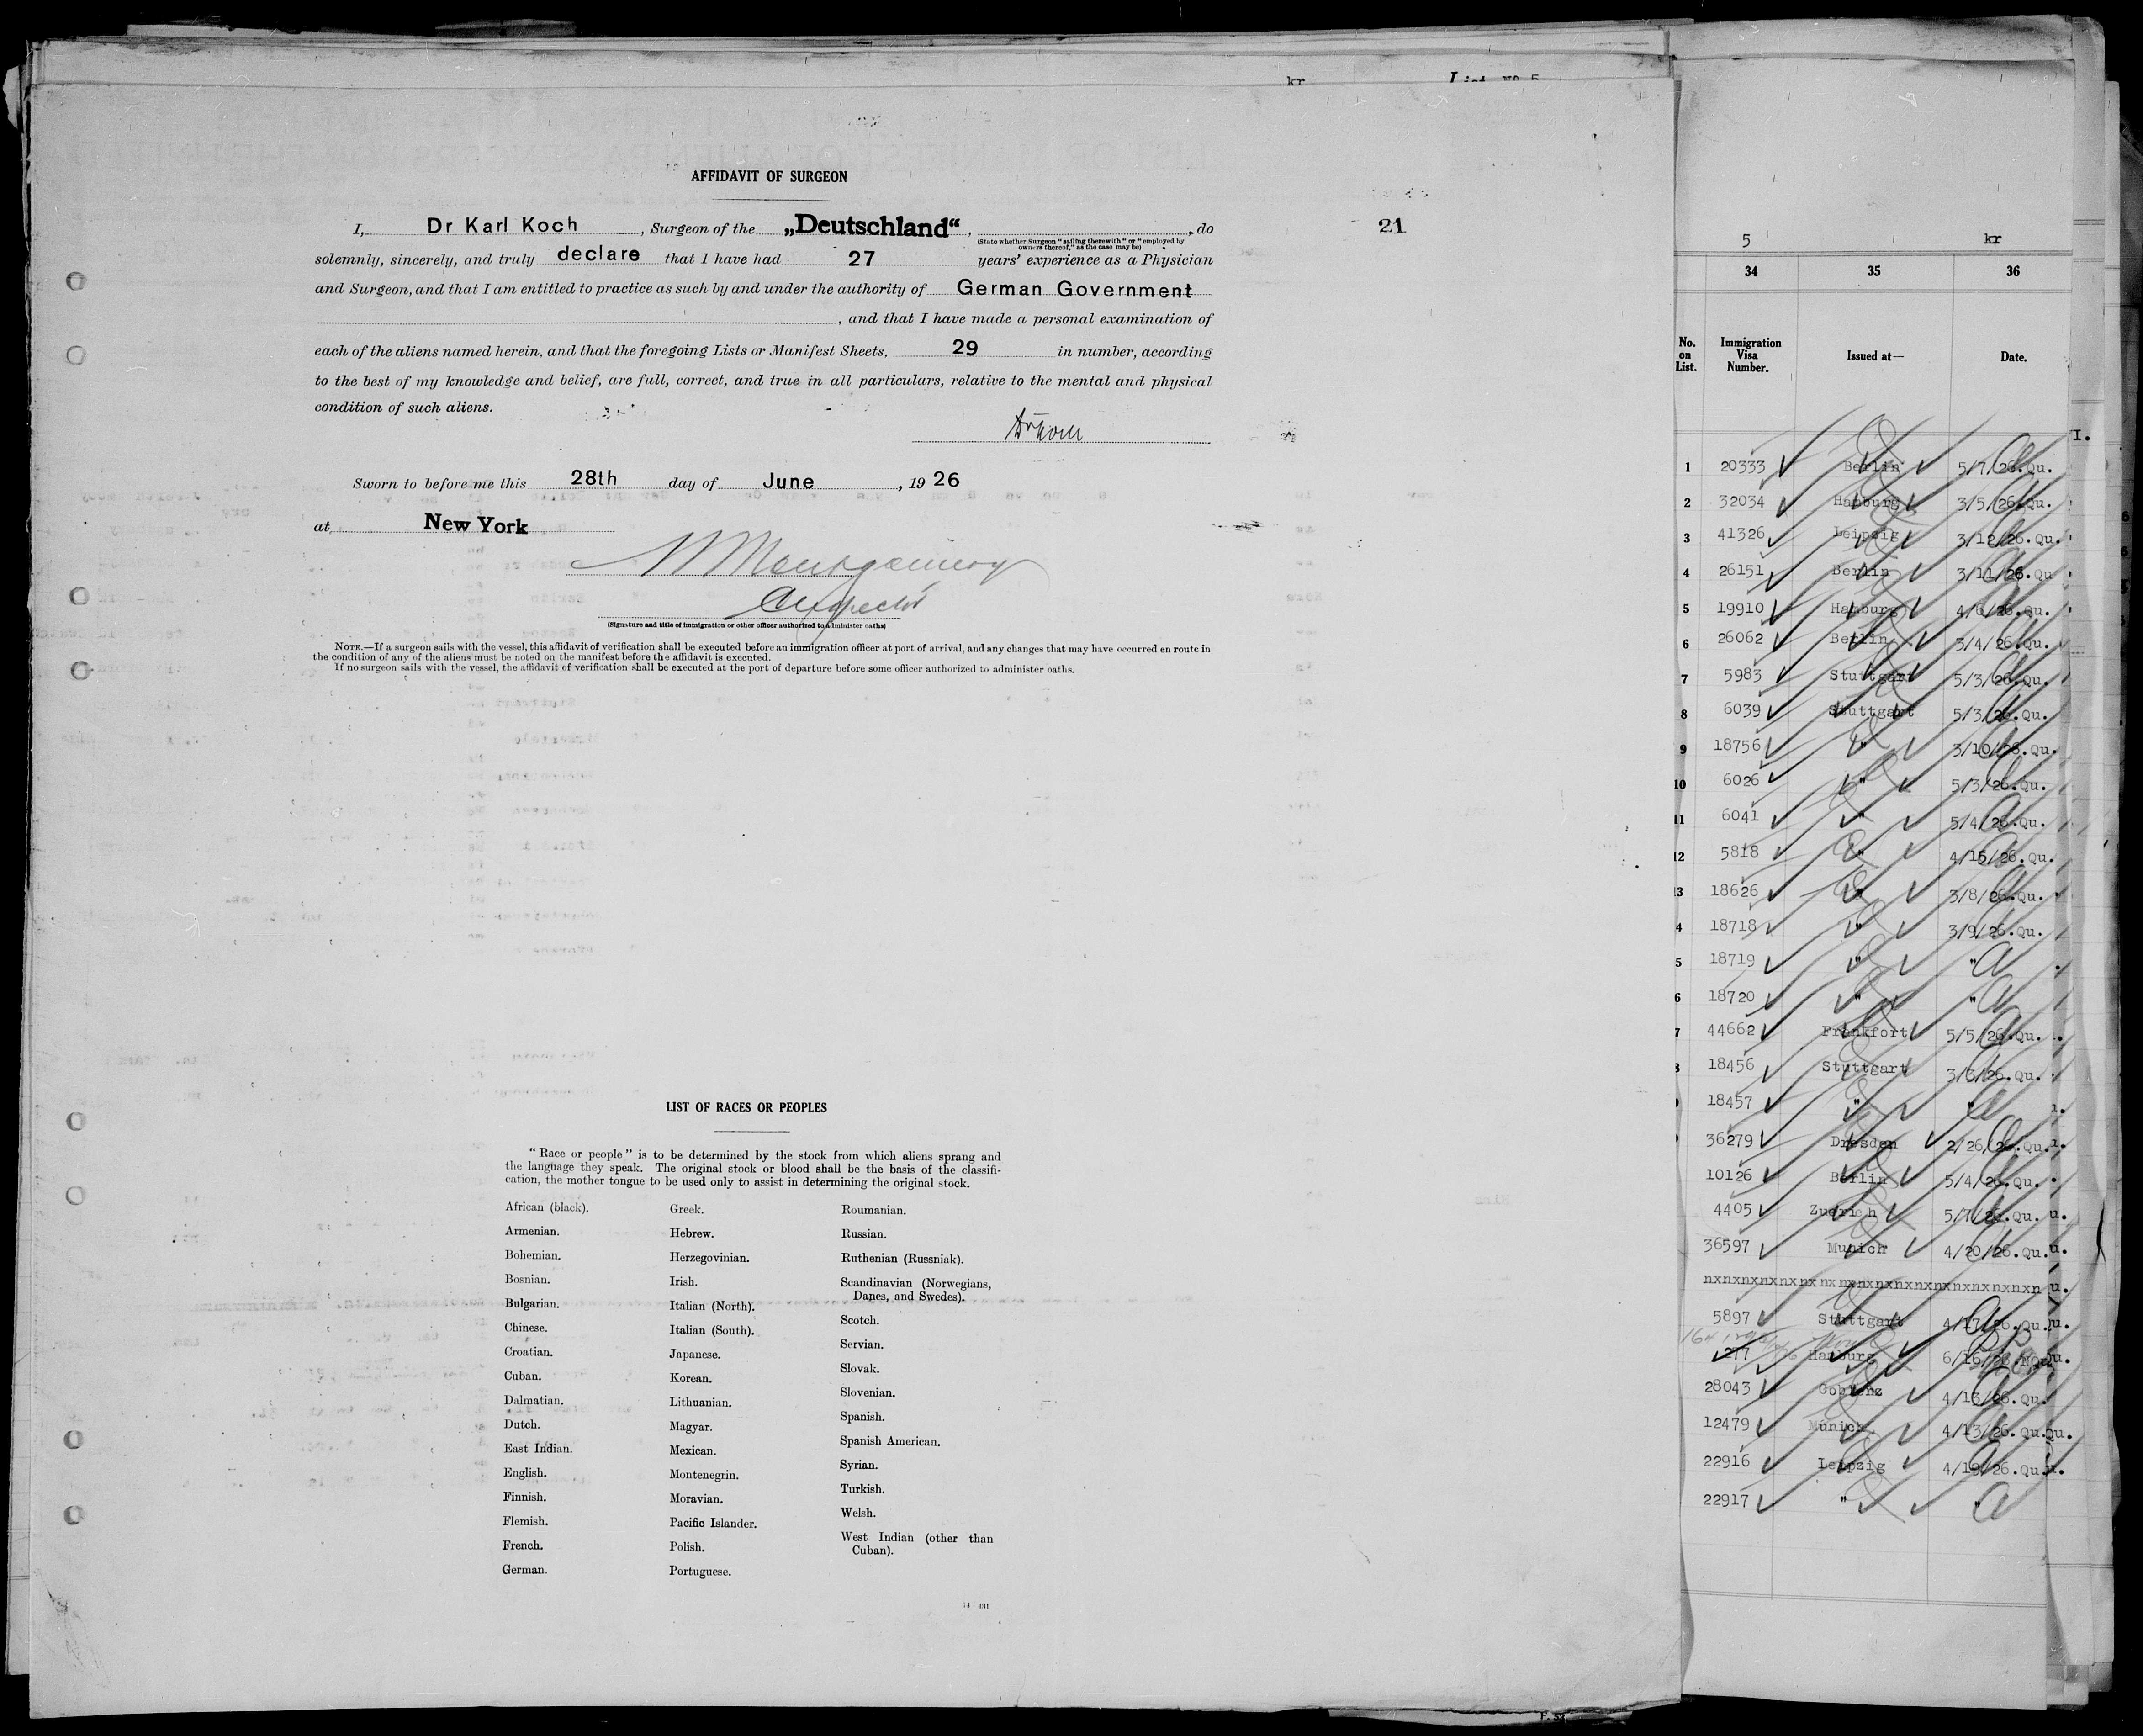 kr
AFFIDAVIT OF SURGEON
I, Dr Karl Koch, Surgeon of the „Deutschland“, , do
(State whether Surgeon "sailing therewith" or "employed by owners thereof," as the case may be)
21
solemnly, sincerely, and truly declare that I have had 27 years' experience as a Physician
and Surgeon, and that I am entitled to practice as such by and under the authority of German Government
, and that I have made a personal examination of
each of the aliens named herein, and that the foregoing Lists or Manifest Sheets, 29 in number, according
to the best of my knowledge and belief, are full, correct, and true in all particulars, relative to the mental and physical
condition of such aliens.
Sworn to before me this 28th day of June, 1926
at New York
Montgomery
Inspector
(Signature and title of immigration or other officer authorized to administer oaths)
NOTE.—If a surgeon sails with the vessel, this affidavit of verification shall be executed before an immigration officer at port of arrival, and any changes that may have occurred en route in
the condition of any of the aliens must be noted on the manifest before the affidavit is executed.
If no surgeon sails with the vessel, the affidavit of verification shall be executed at the port of departure before some officer authorized to administer oaths.
LIST OF RACES OR PEOPLES
"Race or people" is to be determined by the stock from which aliens sprang and
the language they speak. The original stock or blood shall be the basis of the classifi-
cation, the mother tongue to be used only to assist in determining the original stock.
African (black).
Armenian.
Bohemian.
Bosnian.
Bulgarian.
Chinese.
Croatian.
Cuban.
Dalmatian.
Dutch.
East Indian.
English.
Finnish.
Flemish.
French.
German.
Greek.
Hebrew.
Herzegovinian.
Irish.
Italian (North).
Italian (South).
Japanese.
Korean.
Lithuanian.
Magyar.
Mexican.
Montenegrin.
Moravian.
Pacific Islander.
Polish.
Portuguese.
Roumanian.
Russian.
Ruthenian (Russniak).
Scandinavian (Norwegians,
Danes, and Swedes).
Scotch.
Servian.
Slovak.
Slovenian.
Spanish.
Spanish American.
Syrian.
Turkish.
Welsh.
West Indian (other than
Cuban).
5 kr
34 35 36
No. on List. Immigration Visa Number. Issued at— Date.
1 20333 Berlin 5/7/26.Qu.
2 32034 Hamburg 3/5/26.Qu.
3 41326 Leipzig 3/12/26.Qu.
4 26151 Berlin 3/11/26.Qu
5 19910 Hamburg 4/6/26.Qu.
6 26062 Berlin 3/4/26.Qu.
7 5983 Stuttgart 5/3/26.Qu.
8 6039 Stuttgart 5/3/26.Qu.
9 18756 " 3/10/26.Qu.
10 6026 " 5/3/26.Qu.
11 6041 " 5/4/26.Qu.
12 5818 " 4/15/26.Qu.
3 18626 " 3/8/26.Qu.
4 18718 " 3/9/26.Qu.
5 18719 " "
6 18720 " "
7 44662 Frankfort 5/5/26.Qu.
8 18456 Stuttgart 3/6/26.Qu.
18457 " "
36279 Dresden 2/26/26.Qu.
10126 Berlin 5/4/26.Qu.
4405 Zuerich 5/7/26.Qu.
36597 Munich 4/20/26.Qu.
nxnxnxnxnxnxnxnxnxnxnxnxnxnxnxnxnxn
5897 Stuttgart 4/17/26.Qu.
277 Hamburg 6/16/26.NQu.
28043 Coblenz 4/13/26.Qu.
12479 Munich 4/13/26.Qu.
22916 Leipzig 4/19/26.Qu.
22917 " "